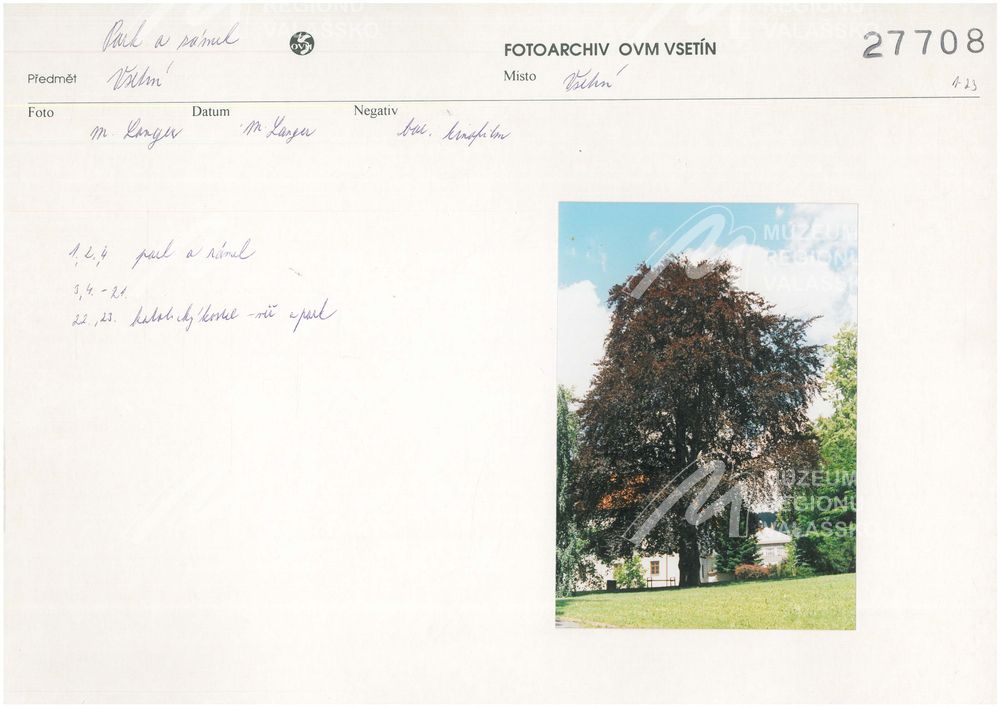 Park a zámek
OVM
FOTOARCHIV OVM VSETÍN
27708
Předmět Vsetín
Místo Vsetín
1-23
Foto Datum Negativ
M. Langer M Langer bar. kinofilm
1,2,4 park a zámek
3,4.-21.
22.,23. katolický kostel - věž a park
MUZEUM
REGIONU
VALAŠSKO
MUZEUM
REGIONU
VALAŠSKO